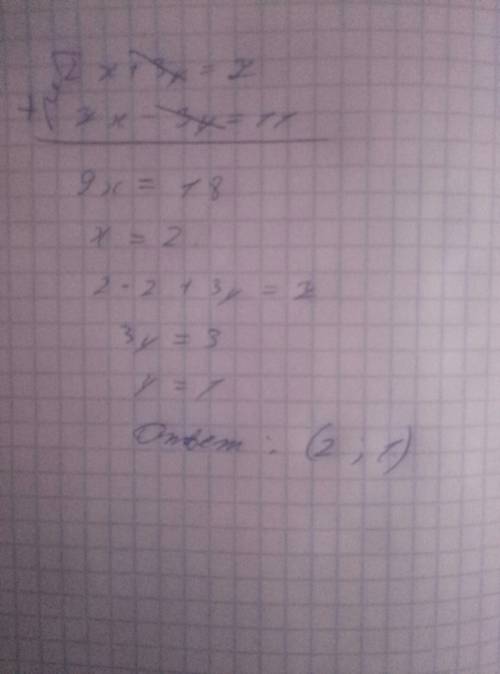 2x + 3y = 7
+ 7x - 3y = 11
9x = 18
x = 2.
2 · 2 + 3y = 7
3y = 3
y = 1
Ответ: (2; 1)